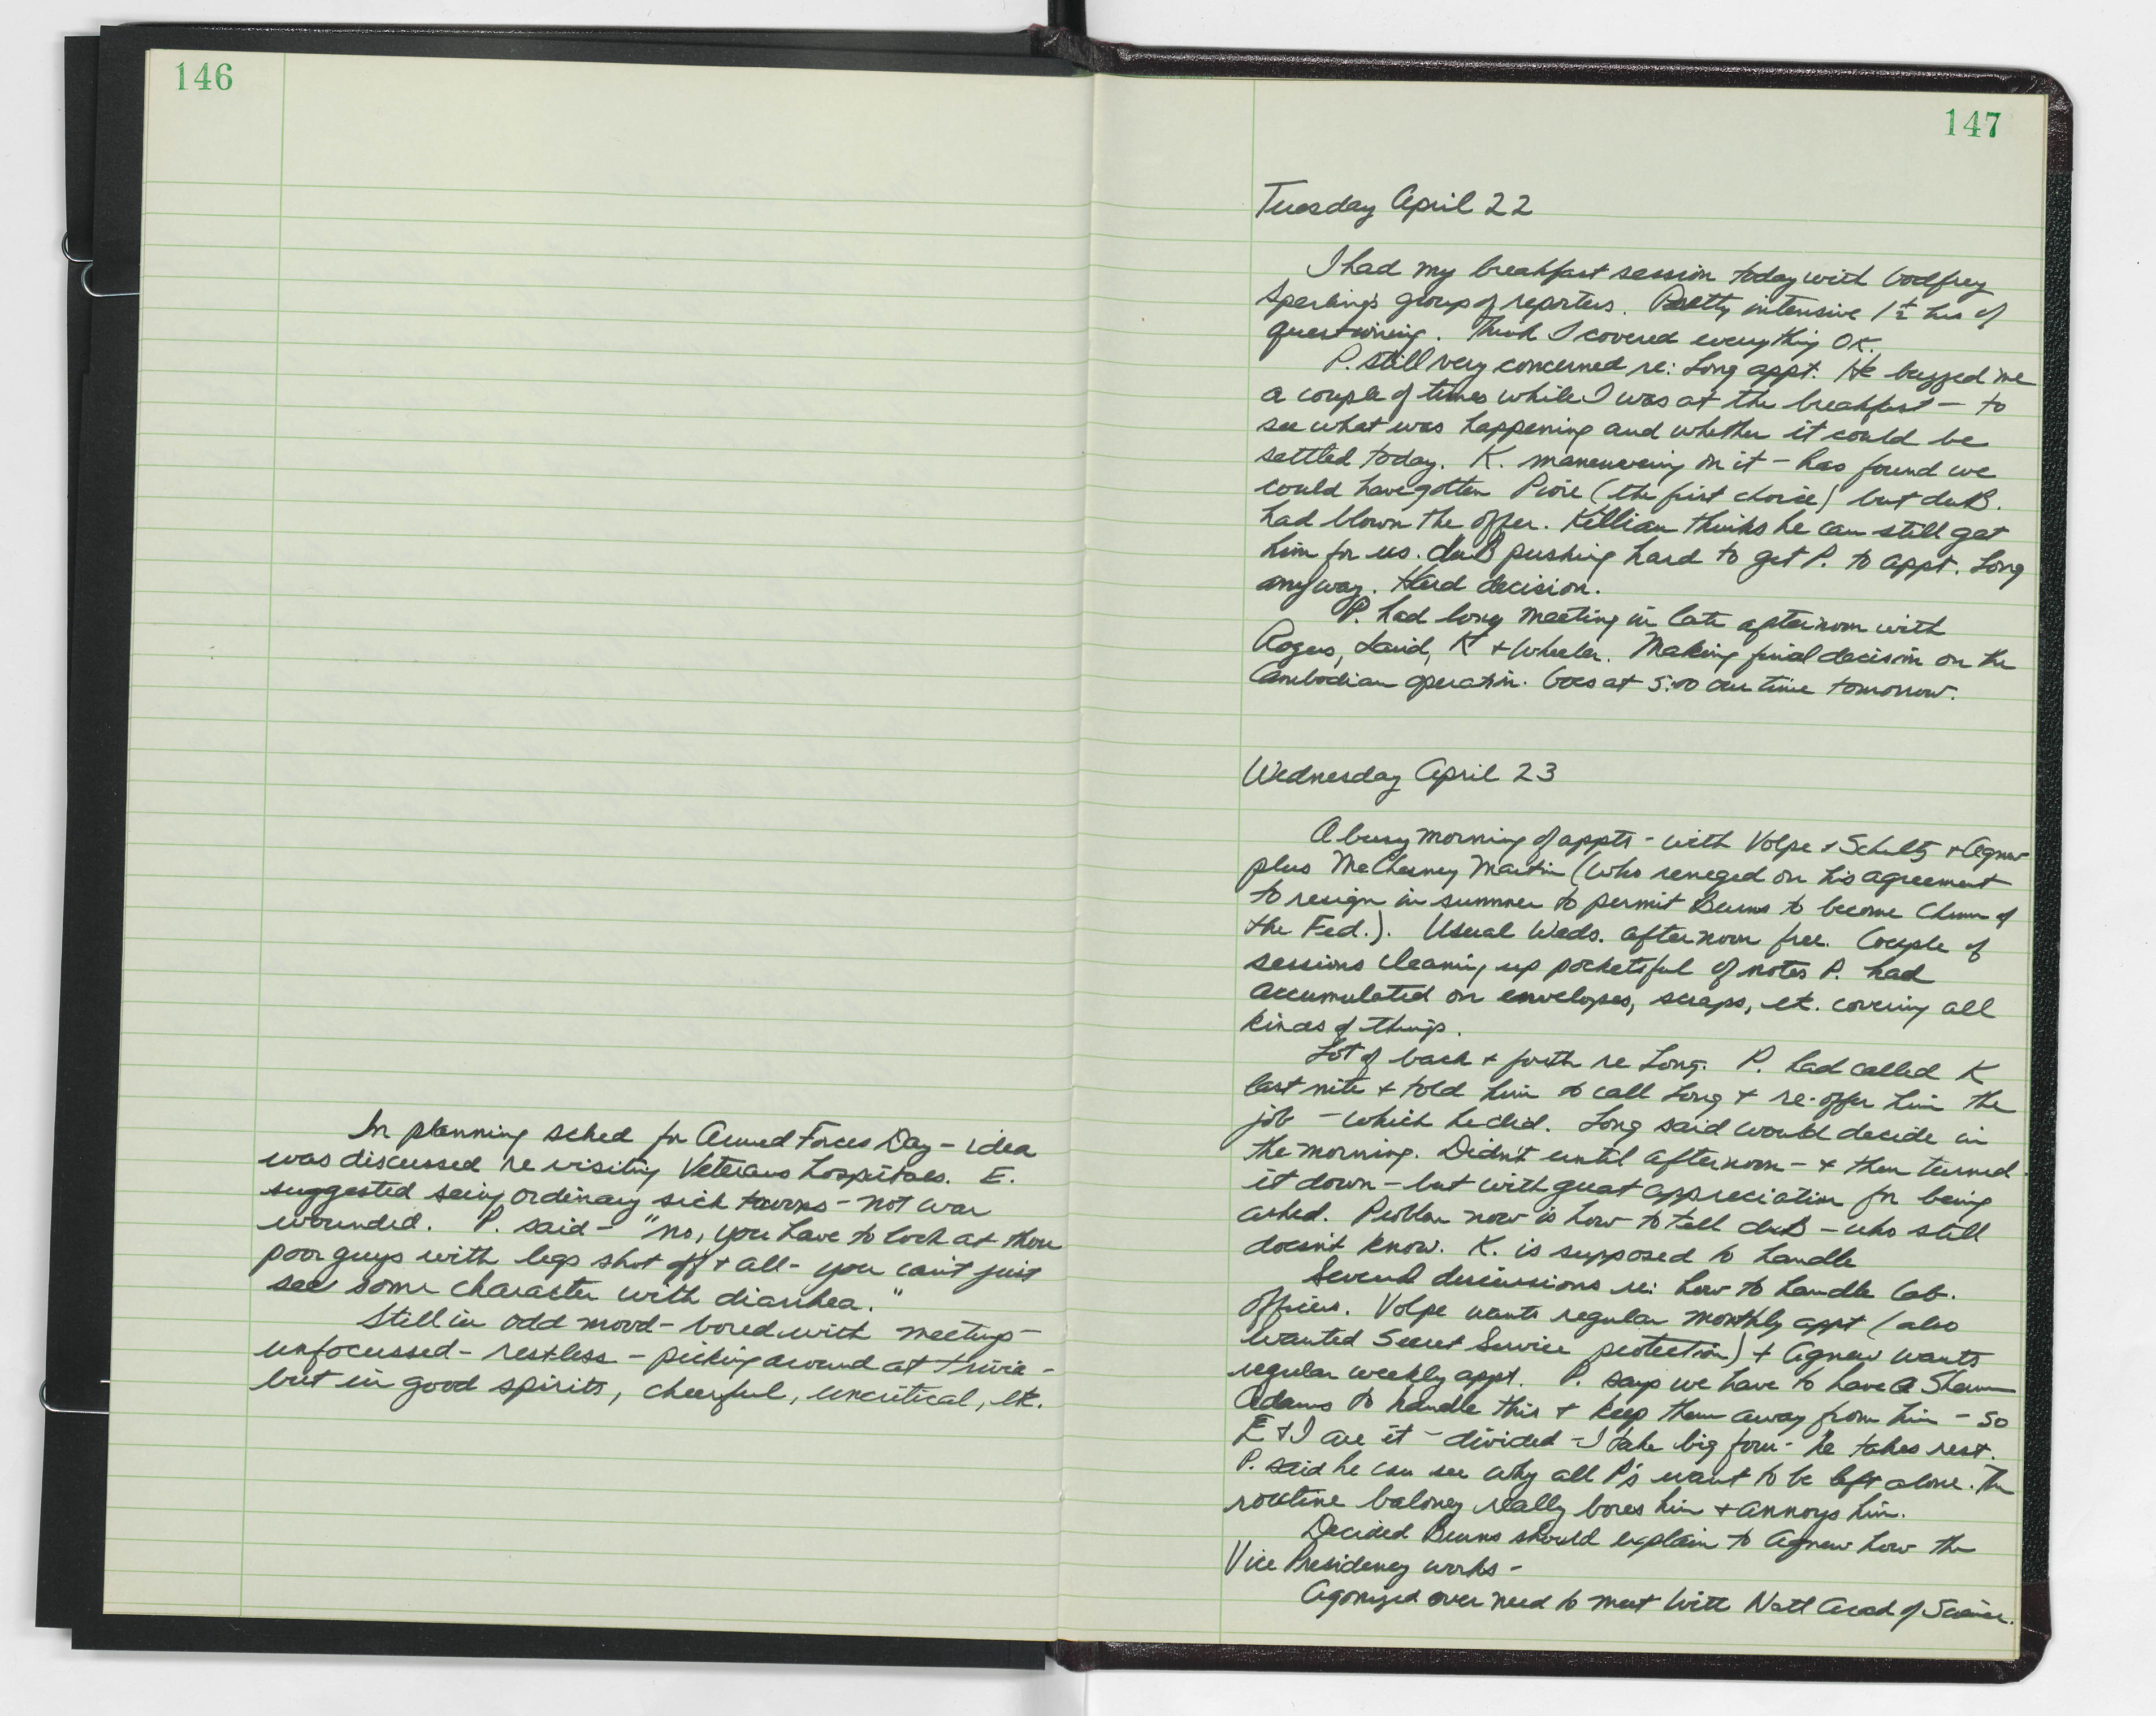 146
In planning sched for Armed Forces Day - idea
was discussed re visiting Veterans hospitals. E.
suggested seeing ordinary sick - not war
wounded. P. said - "no, you have to look at those
poor guys with legs shot off + all - you can't just
see some character with diarrhea."
Still in odd mood - bored with meetings -
unfocussed - restless - picking around at trivia -
but in good spirits, cheerful, uncritical, etc.
147
Tuesday April 22
I had my breakfast session today with Godfrey
Sperling's group of reporters. Pretty intensive 1½ hrs of
questioning. Think I covered everything OK.
P. still very concerned re: Long appt. He buzzed me
a couple of times while I was at the breakfast - to
see what was happening and whether it could be
settled today. K. maneuvering on it - has found we
could have gotten Piore (the first choice) but duB.
had blown the offer. Killian thinks he can still get
him for us. duB pushing hard to get P. to appt. Long
anyway. Hard decision.
P. had long meeting in late afternoon with
Rogers, Laird, K + Wheeler. Making final decision on the
Cambodian operation. Goes at 5:00 our time tomorrow.
Wednesday April 23
A busy morning of appts - with Volpe + Schultz + Agnew
plus McChesney Martin (who reneged on his agreement
to resign in summer to permit Burns to become Chmn of
the Fed.). Usual Weds. afternoon free. Couple of
sessions cleaning up pocketsful of notes P. had
accumulated on envelopes, scraps, etc. covering all
kinds of things.
Lot of back + forth re Long. P. had called K
last nite + told him to call Long + re-offer him the
job - which he did. Long said would decide in
the morning. Didn't until afternoon - + then turned
it down - but with great appreciation for being
asked. Problem now is how to tell duB - who still
doesn't know. K. is supposed to handle
Several discussions re: how to handle Cab.
officers. Volpe wants regular monthly appt (also
wanted Secret Service protection) + Agnew wants
regular weekly appt. P. says we have to have a Sherm
Adams to handle this + keep them away from him - so
E + I are it - divided - I take big four - he takes rest.
P. said he can see why all P's want to be left alone. The
routine baloney really bores him + annoys him.
Decided Burns should explain to Agnew how the
Vice Presidency works -
Agonized over need to meet with Natl Acad of Science.